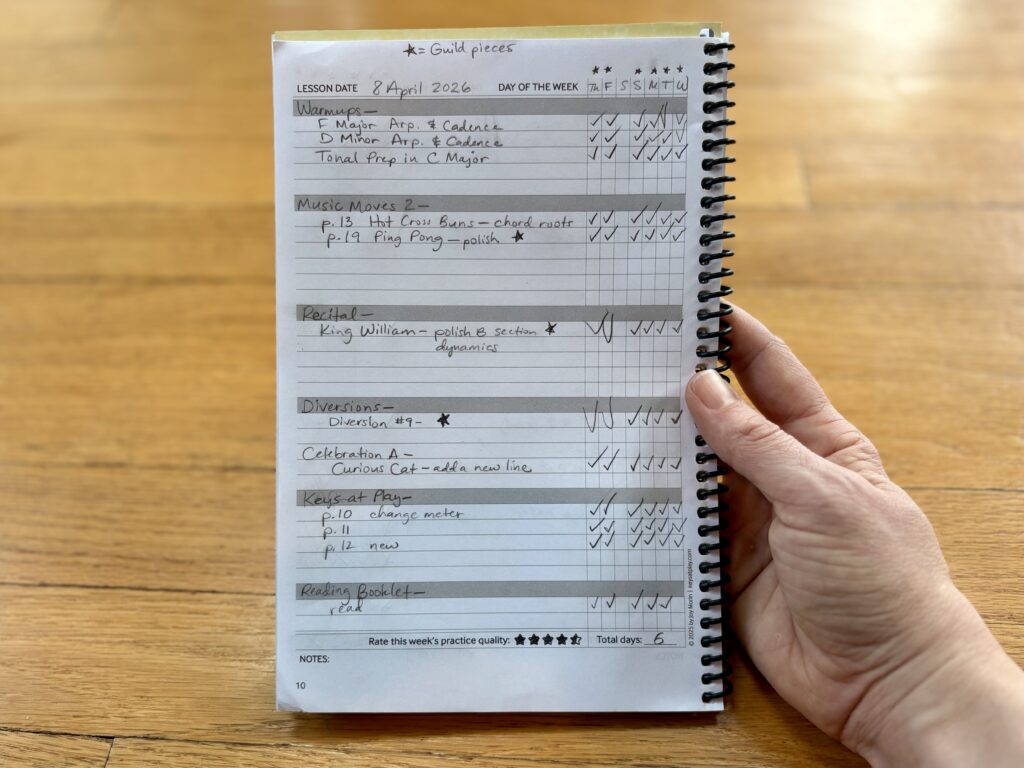 ★ = Guild pieces
★ ★ ★ ★ ★ ★
LESSON DATE 8 April 2026 DAY OF THE WEEK Th F S S M T W
Warmups—
F Major Arp. & Cadence ✓ ✓ ✓ ✓ ✓ ✓
D Minor Arp. & Cadence ✓ ✓ ✓ ✓ ✓ ✓
Tonal Prep in C Major ✓ ✓ ✓ ✓ ✓ ✓
Music Moves 2—
p. 13 Hot Cross Buns — chord roots ✓ ✓ ✓ ✓ ✓ ✓
p. 19 Ping Pong — polish ★ ✓ ✓ ✓ ✓ ✓ ✓
Recital—
King William — polish B section ★ ✓ ✓ ✓ ✓ ✓ ✓
dynamics
Diversions—
Diversion #9 – ★ ✓ ✓ ✓ ✓ ✓ ✓
Celebration A —
Curious Cat — add a new line ✓ ✓ ✓ ✓ ✓ ✓
Keys at Play—
p. 10 change meter ✓ ✓ ✓ ✓ ✓ ✓
p. 11 ✓ ✓ ✓ ✓ ✓ ✓
p. 12 new ✓ ✓ ✓ ✓ ✓ ✓
Reading Booklet—
read ✓ ✓ ✓ ✓ ✓
Rate this week's practice quality: ★★★★★ Total days: 6
NOTES:
10
© 2025 by Joy Morin | keysatplay.com